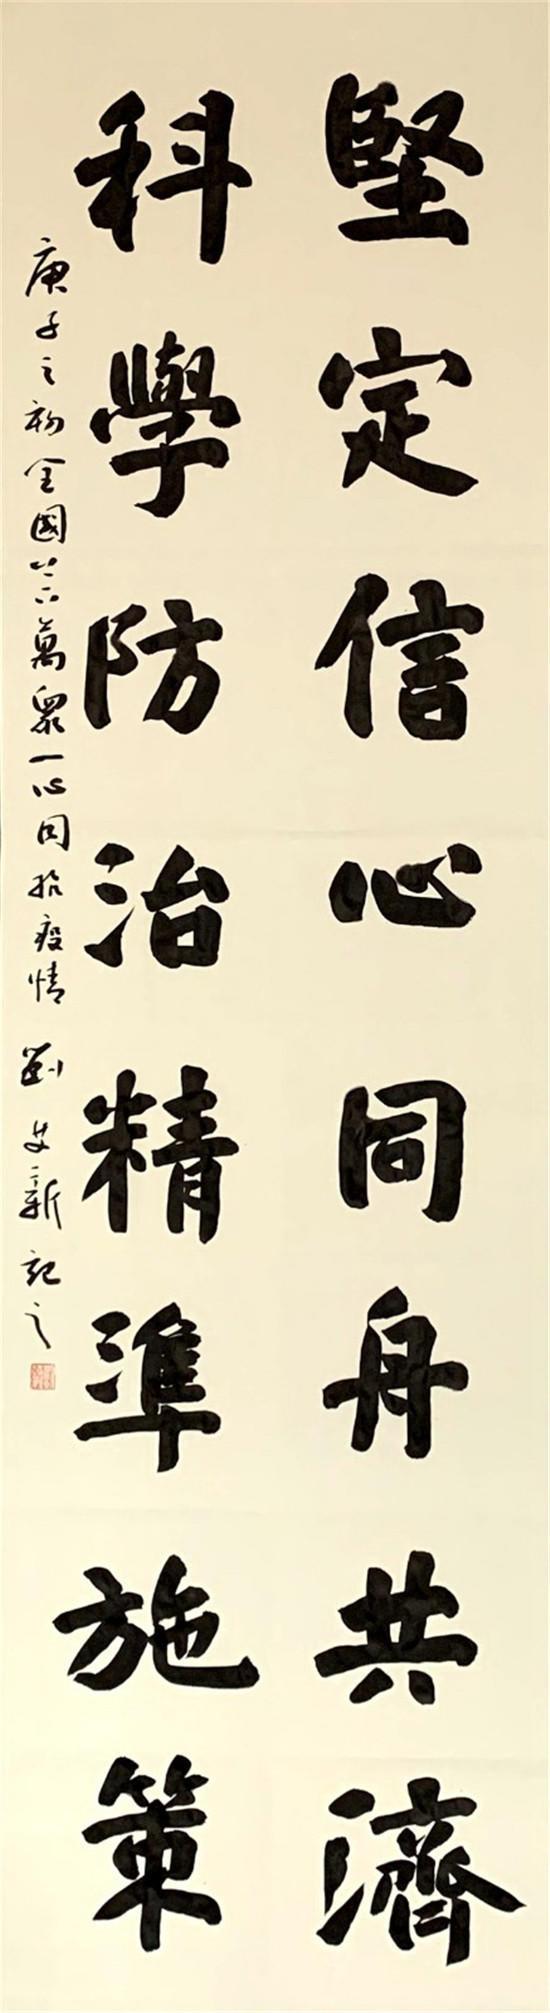 堅定信心同舟共濟
科學防治精準施策
庚子之初全國上下萬眾一心同抗疫情 劉文新記之